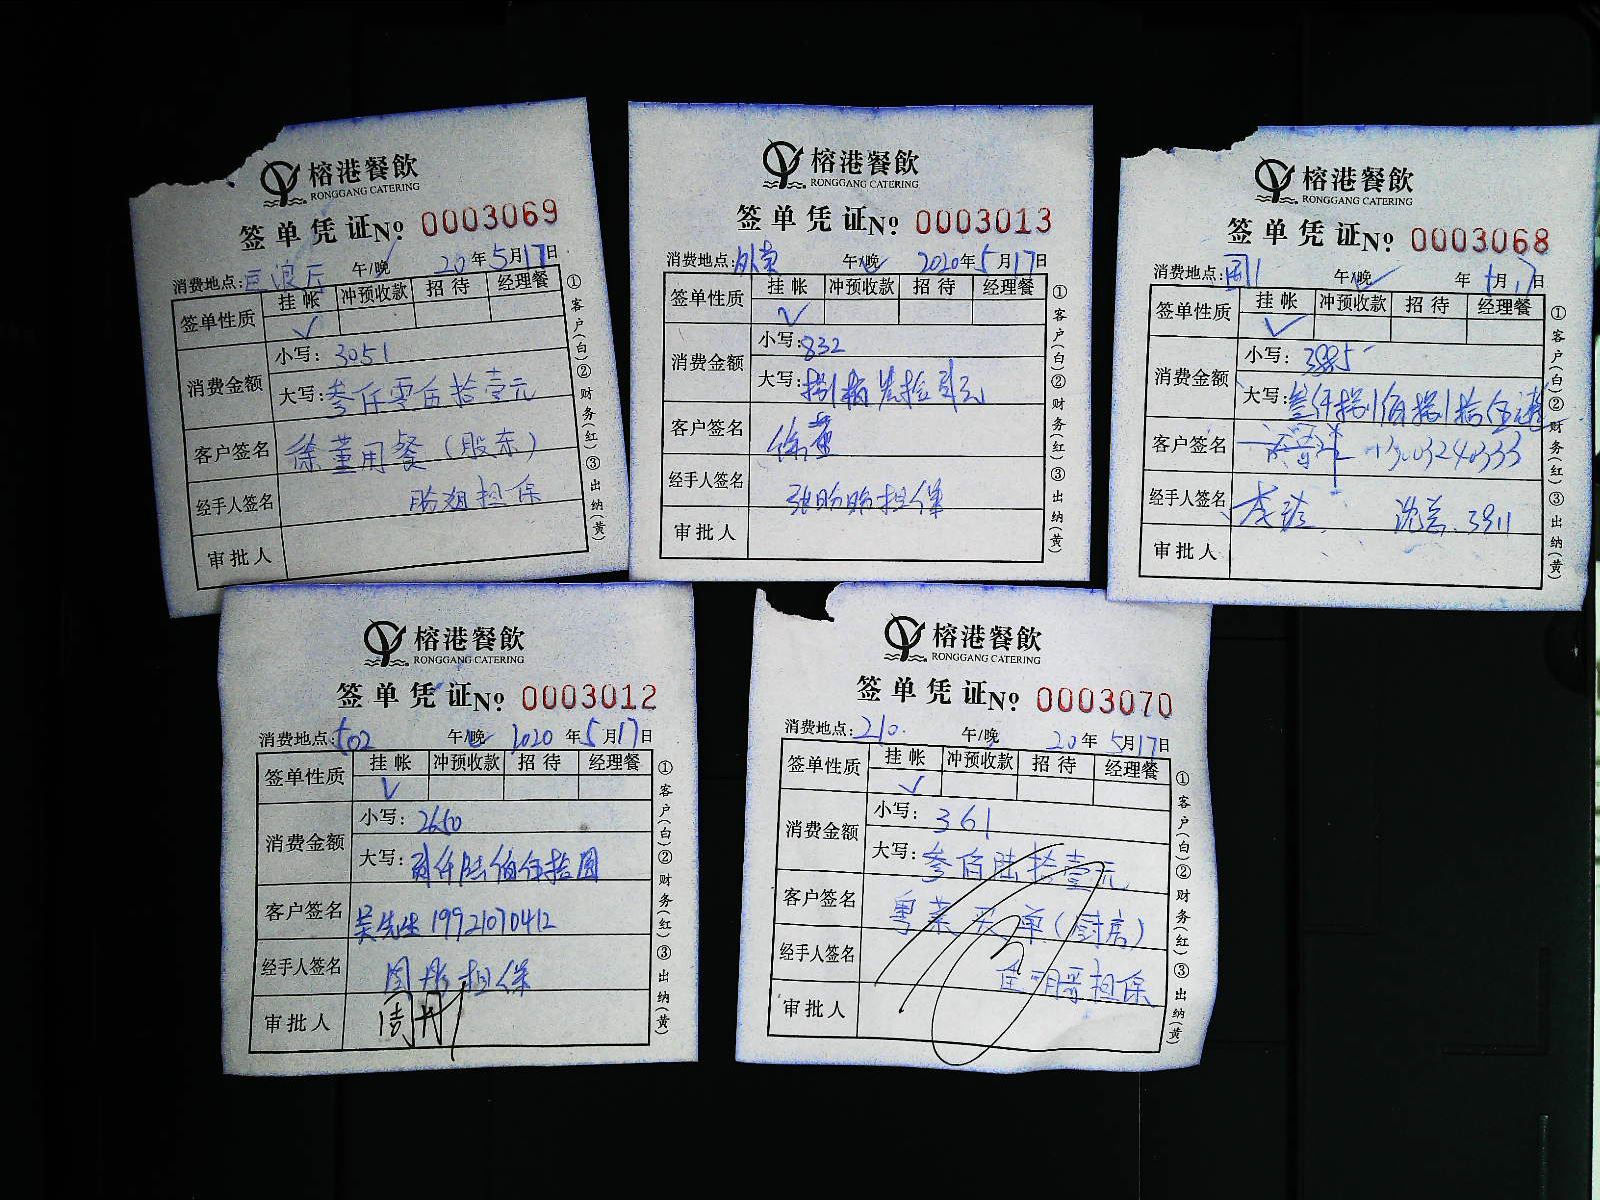 榕港餐飲
RONGGANG CATERING
签单凭证№ 0003069
消费地点: 午/晚 20年5月17日
签单性质 挂帐 冲预收款 招待 经理餐
✓
消费金额 小写: 3051
大写: 叁仟零伍拾壹元
客户签名 徐董用餐(股东)
经手人签名 担保
审批人
①客户(白)②财务(红)③出纳(黄)
榕港餐飲
RONGGANG CATERING
签单凭证№ 0003013
消费地点:外卖 午/晚 2020年5月17日
签单性质 挂帐 冲预收款 招待 经理餐
✓
消费金额 小写: 832
大写: 捌佰叁拾贰元
客户签名 徐董
经手人签名 张盼盼担保
审批人
①客户(白)②财务(红)③出纳(黄)
榕港餐飲
RONGGANG CATERING
签单凭证№ 0003068
消费地点: 午/晚 年 月17日
签单性质 挂帐 冲预收款 招待 经理餐
✓
消费金额 小写: 3885
大写: 叁仟捌佰捌拾伍元整
客户签名 13003240333
经手人签名 3811
审批人
①客户(白)②财务(红)③出纳(黄)
榕港餐飲
RONGGANG CATERING
签单凭证№ 0003012
消费地点:502 午/晚 2020年5月17日
签单性质 挂帐 冲预收款 招待 经理餐
✓
消费金额 小写: 2650
大写: 贰仟陆佰伍拾圆
客户签名 吴先生 19921070412
经手人签名 周彤担保
审批人
①客户(白)②财务(红)③出纳(黄)
榕港餐飲
RONGGANG CATERING
签单凭证№ 0003070
消费地点:210. 午/晚 20年5月17日
签单性质 挂帐 冲预收款 招待 经理餐
✓
消费金额 小写: 361
大写: 叁佰陆拾壹元
客户签名 粤菜买单(厨房)
经手人签名 明哥担保
审批人
①客户(白)②财务(红)③出纳(黄)